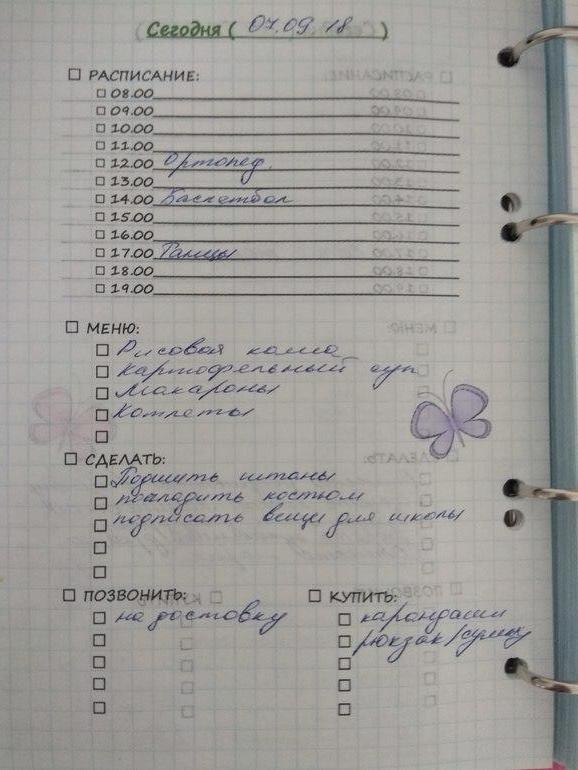 Сегодня ( 07.09.18 )
РАСПИСАНИЕ:
08.00
09.00
10.00
11.00
12.00 Ортопед.
13.00
14.00 Баскетбол
15.00
16.00
17.00 Танцы
18.00
19.00
МЕНЮ:
Рисовая каша
Картофельный суп
Макароны
Котлеты
СДЕЛАТЬ:
Подшить штаны
погладить костюм
подписать вещи для школы
ПОЗВОНИТЬ:
на доставку
КУПИТЬ:
карандаши
рюкзак/сумку